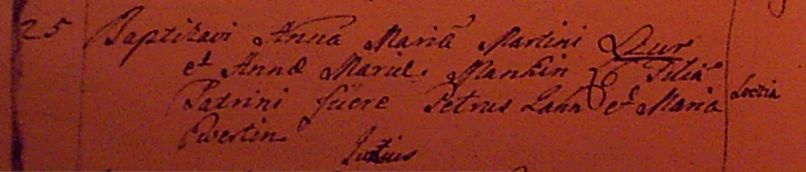 25 Baptizavi Anna Mariã Martini Dur
et Annæ Mariæ Mankin L. Filiã
Patrini fuere Petrus Lahn et Maria Lucia
Ewertin
Julius